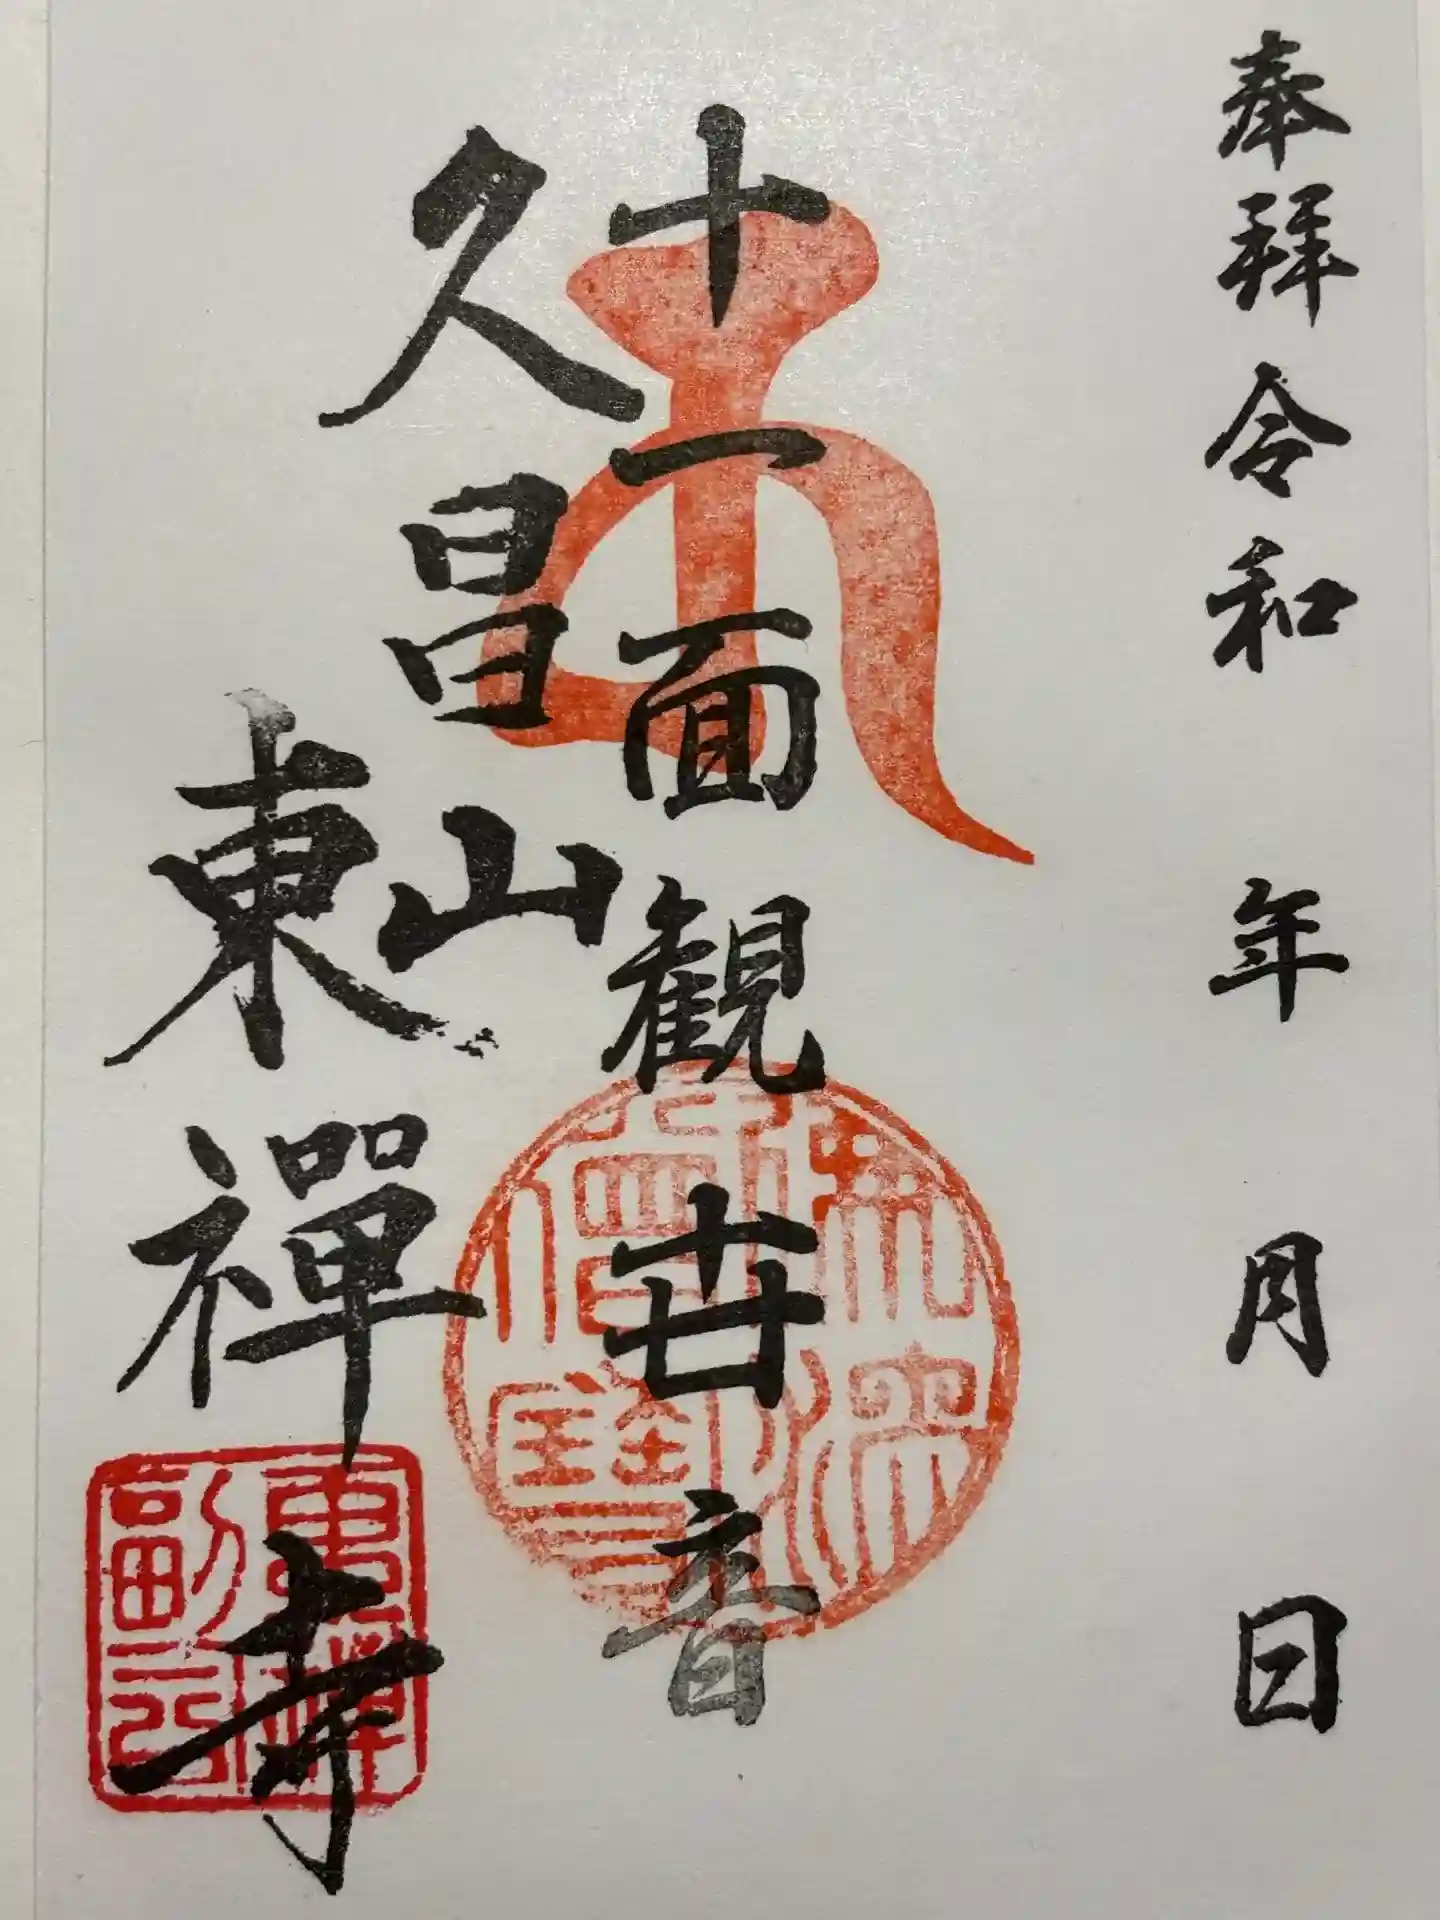 奉拜 令和 年 月 日
十一面観世音
久昌山
東禪寺